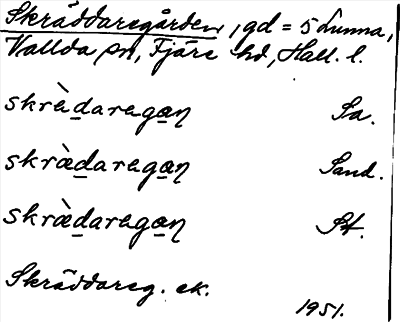 Skräddaregården, gd = 5 Lunna,
Vallda sn, Fjäre hd, Hall. l.
skrὲdaregan̥ Sa.
skrὰdaregan̥ Sand.
skræ̀daregan̥ St.
Skräddareg. ek.
1951.